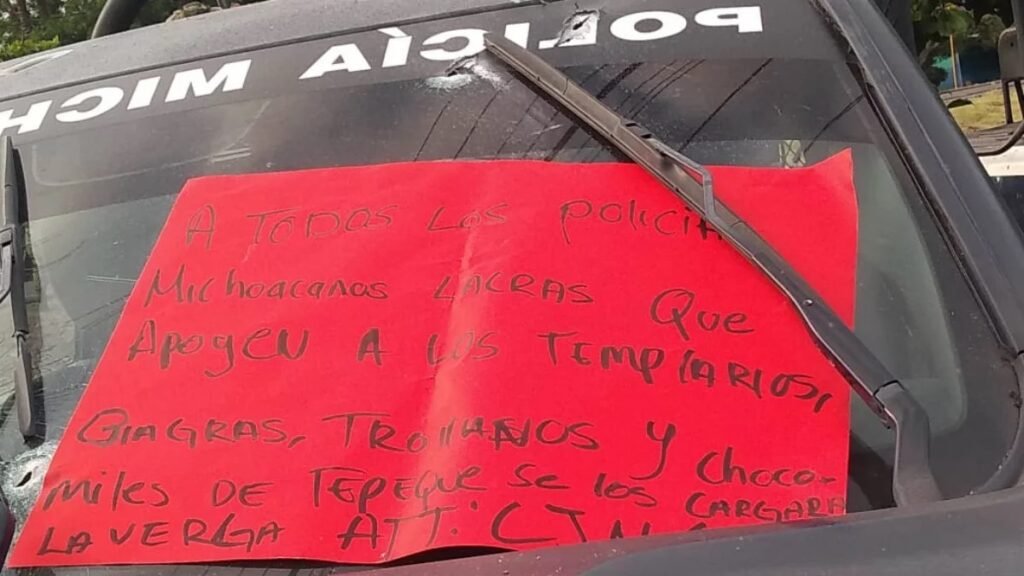 POLICÍA MICH
A TODOS LOS POLICIA
Michoacanos LACRAS Que
Apogen A LOS TEMPLARIOS,
GIAGRAS, TROIIANOS Y Choco-
miles DE TEPEQUE Se los CARGARA
LA VERGA ATT: CJN